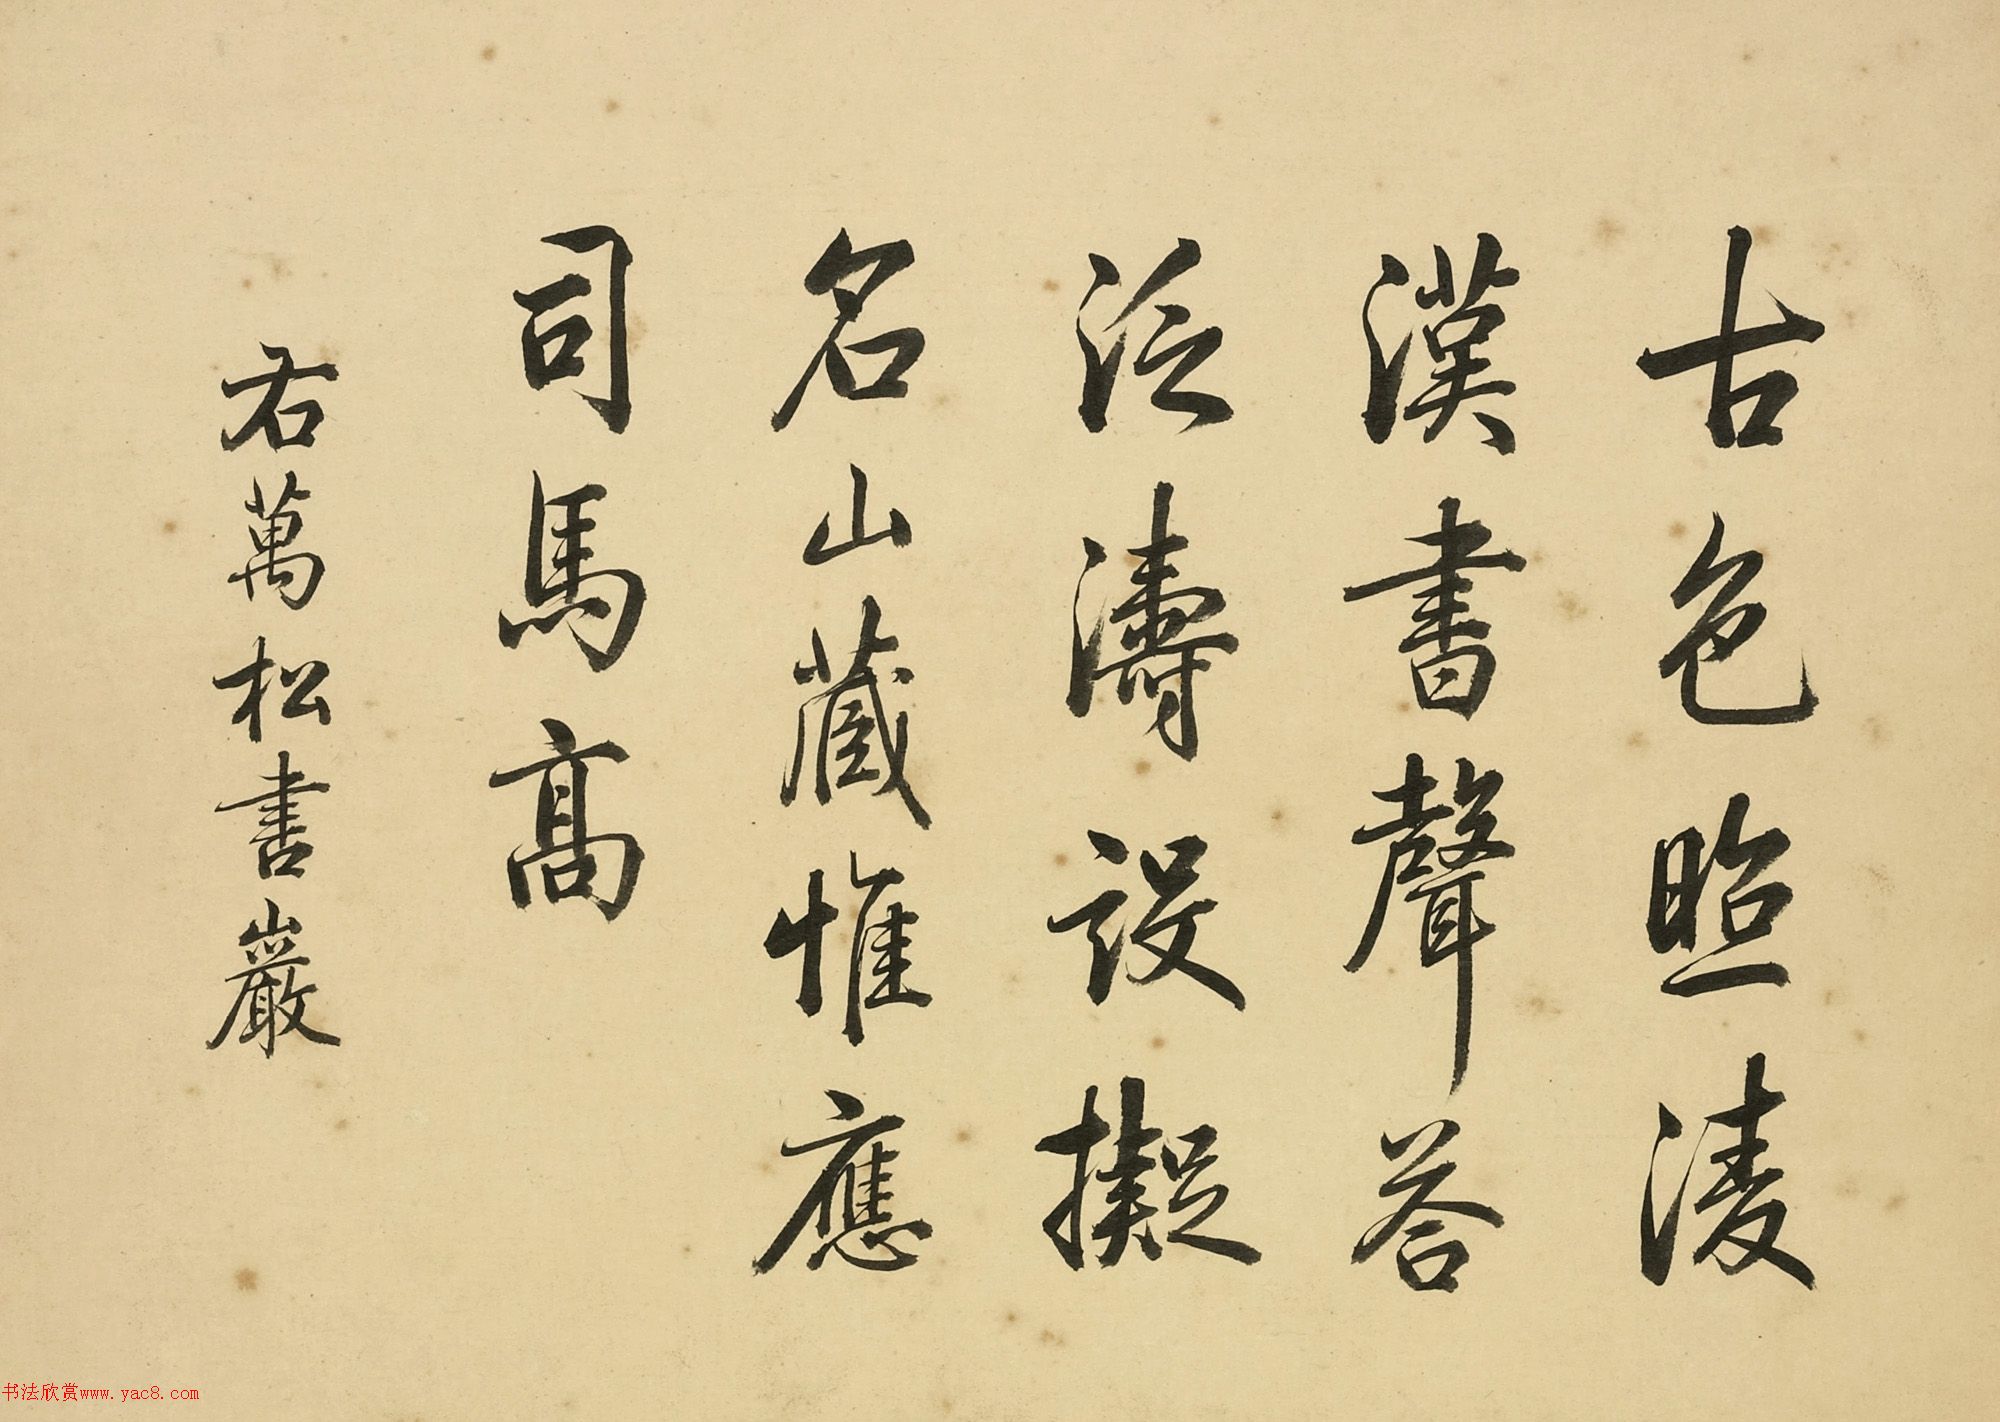 古色照淩
漢書聲答
泛濤設擬
名山藏惟應
司馬高
右萬松書巖
书法欣赏www.yac8.com